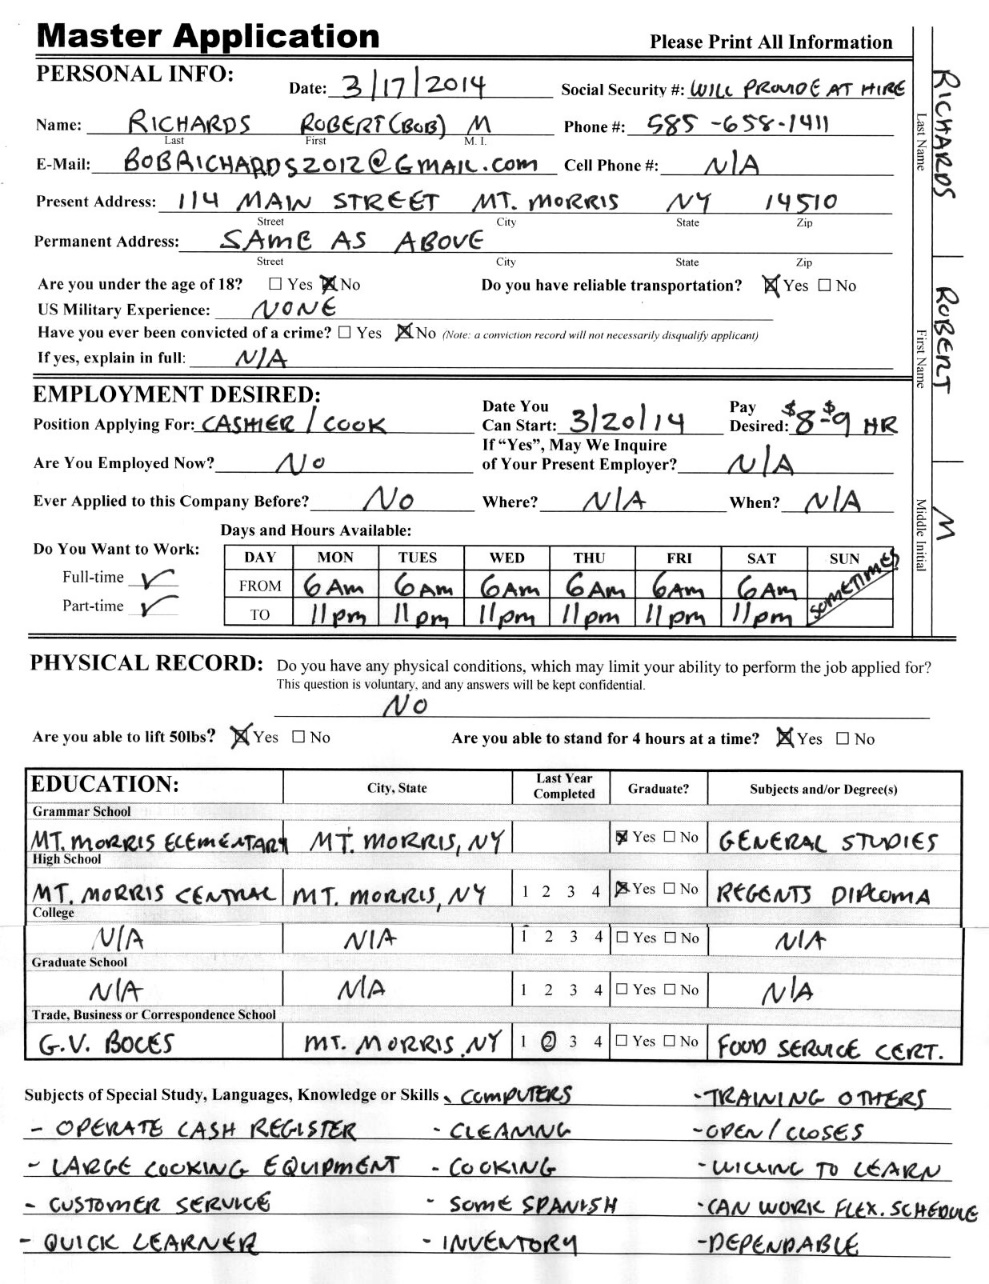 Master Application Please Print All Information
PERSONAL INFO: Date: 3/17/2014 Social Security #: WILL PROVIDE AT HIRE
Name: RICHARDS ROBERT (BOB) M Phone #: 585-658-1411
Last First M. I.
E-Mail: BOBRICHARDS2012@GMAIL.COM Cell Phone #: N/A
Present Address: 114 MAIN STREET MT. MORRIS NY 14510
Street City State Zip
Permanent Address: SAME AS ABOVE
Street City State Zip
Are you under the age of 18? ☐ Yes ☒ No Do you have reliable transportation? ☒ Yes ☐ No
US Military Experience: NONE
Have you ever been convicted of a crime? ☐ Yes ☒ No (Note: a conviction record will not necessarily disqualify applicant)
If yes, explain in full: N/A
EMPLOYMENT DESIRED:
Position Applying For: CASHIER / COOK Date You Can Start: 3/20/14 Pay Desired: $8-$9 HR
Are You Employed Now? NO If “Yes”, May We Inquire of Your Present Employer? N/A
Ever Applied to this Company Before? NO Where? N/A When? N/A
Days and Hours Available:
Do You Want to Work:
Full-time ✓
Part-time ✓
DAY MON TUES WED THU FRI SAT SUN
FROM 6 Am 6 Am 6 Am 6 Am 6 Am 6 Am SOMETIMES
TO 11 pm 11 pm 11 pm 11 pm 11 pm 11 pm
RICHARDS
Last Name
ROBERT
First Name
M
Middle Initial
PHYSICAL RECORD: Do you have any physical conditions, which may limit your ability to perform the job applied for?
This question is voluntary, and any answers will be kept confidential.
NO
Are you able to lift 50lbs? ☒ Yes ☐ No Are you able to stand for 4 hours at a time? ☒ Yes ☐ No
EDUCATION: City, State Last Year Completed Graduate? Subjects and/or Degree(s)
Grammar School
MT. MORRIS ELEMENTARY MT. MORRIS, NY ☒ Yes ☐ No GENERAL STUDIES
High School
MT. MORRIS CENTRAL MT. MORRIS, NY 1 2 3 4 ☒ Yes ☐ No REGENTS DIPLOMA
College
N/A N/A 1 2 3 4 ☐ Yes ☐ No N/A
Graduate School
N/A N/A 1 2 3 4 ☐ Yes ☐ No N/A
Trade, Business or Correspondence School
G.V. BOCES MT. MORRIS, NY 1 2 3 4 ☐ Yes ☐ No FOOD SERVICE CERT.
Subjects of Special Study, Languages, Knowledge or Skills - COMPUTERS - TRAINING OTHERS
- OPERATE CASH REGISTER - CLEANING - OPEN / CLOSES
- LARGE COOKING EQUIPMENT - COOKING - WILLING TO LEARN
- CUSTOMER SERVICE - SOME SPANISH - CAN WORK FLEX. SCHEDULE
- QUICK LEARNER - INVENTORY - DEPENDABLE